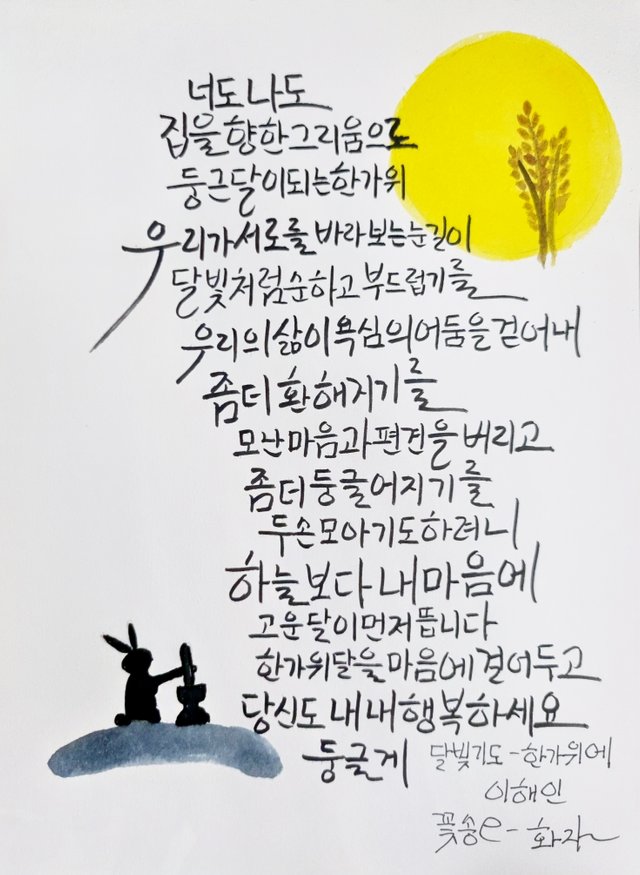 너도 나도
집을 향한 그리움으로
둥근 달이 되는 한가위
우리가 서로를 바라보는 눈길이
달빛처럼 순하고 부드럽기를
우리의 삶이 욕심의 어둠을 걷어내
좀더 환해지기를
모난 마음과 편견을 버리고
좀더 둥글어지기를
두손 모아 기도하려니
하늘보다 내 마음에
고운 달이 먼저 뜹니다
한가위 달을 마음에 걸어두고
당신도 내내 행복하세요
둥글게
달빛기도 - 한가위에
이해인
꽃송e -